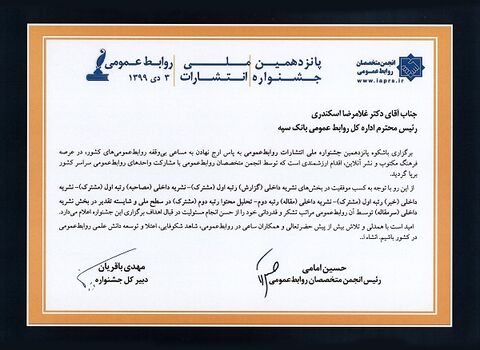 انجمن متخصصان
روابط عمومی
www.iaprs.ir
پانزدهمین ملی روابط عمومی
جشنواره انتشارات ۳ دی ۱۳۹۹
جناب آقای دکتر غلامرضا اسکندری
رئیس محترم اداره کل روابط عمومی بانک سپه
برگزاری باشکوه پانزدهمین جشنواره ملی انتشارات روابط‌عمومی به پاس ارج نهادن به مساعی بی‌وقفه روابط‌عمومی‌های کشور، در عرصه
فرهنگ مکتوب و نشر آنلاین، اقدام ارزشمندی است که توسط انجمن متخصصان روابط‌عمومی با مشارکت واحدهای روابط‌عمومی سراسر کشور
برپا گردید.
از این رو با توجه به کسب موفقیت در بخش‌های نشریه داخلی (گزارش) رتبه اول (مشترک)- نشریه داخلی (مصاحبه) رتبه اول (مشترک)- نشریه
داخلی (خبر) رتبه اول (مشترک)- نشریه داخلی (مقاله) رتبه دوم- تحلیل محتوا رتبه دوم (مشترک) در سطح ملی و شایسته تقدیر در بخش نشریه
داخلی (سرمقاله) توسط آن روابط‌عمومی مراتب تشکر و قدردانی خود را از حسن انجام مسئولیت در قبال اهداف برگزاری این جشنواره اعلام می‌دارد.
امید است با همدلی و تلاش بیش از پیش حضرتعالی و همکاران ساعی در روابط‌عمومی، شاهد شکوفایی، اعتلا و توسعه دانش علمی روابط‌عمومی
در کشور باشیم. انشاا..
حسین امامی
رئیس انجمن متخصصان روابط‌عمومی
مهدی باقریان
دبیر کل جشنواره